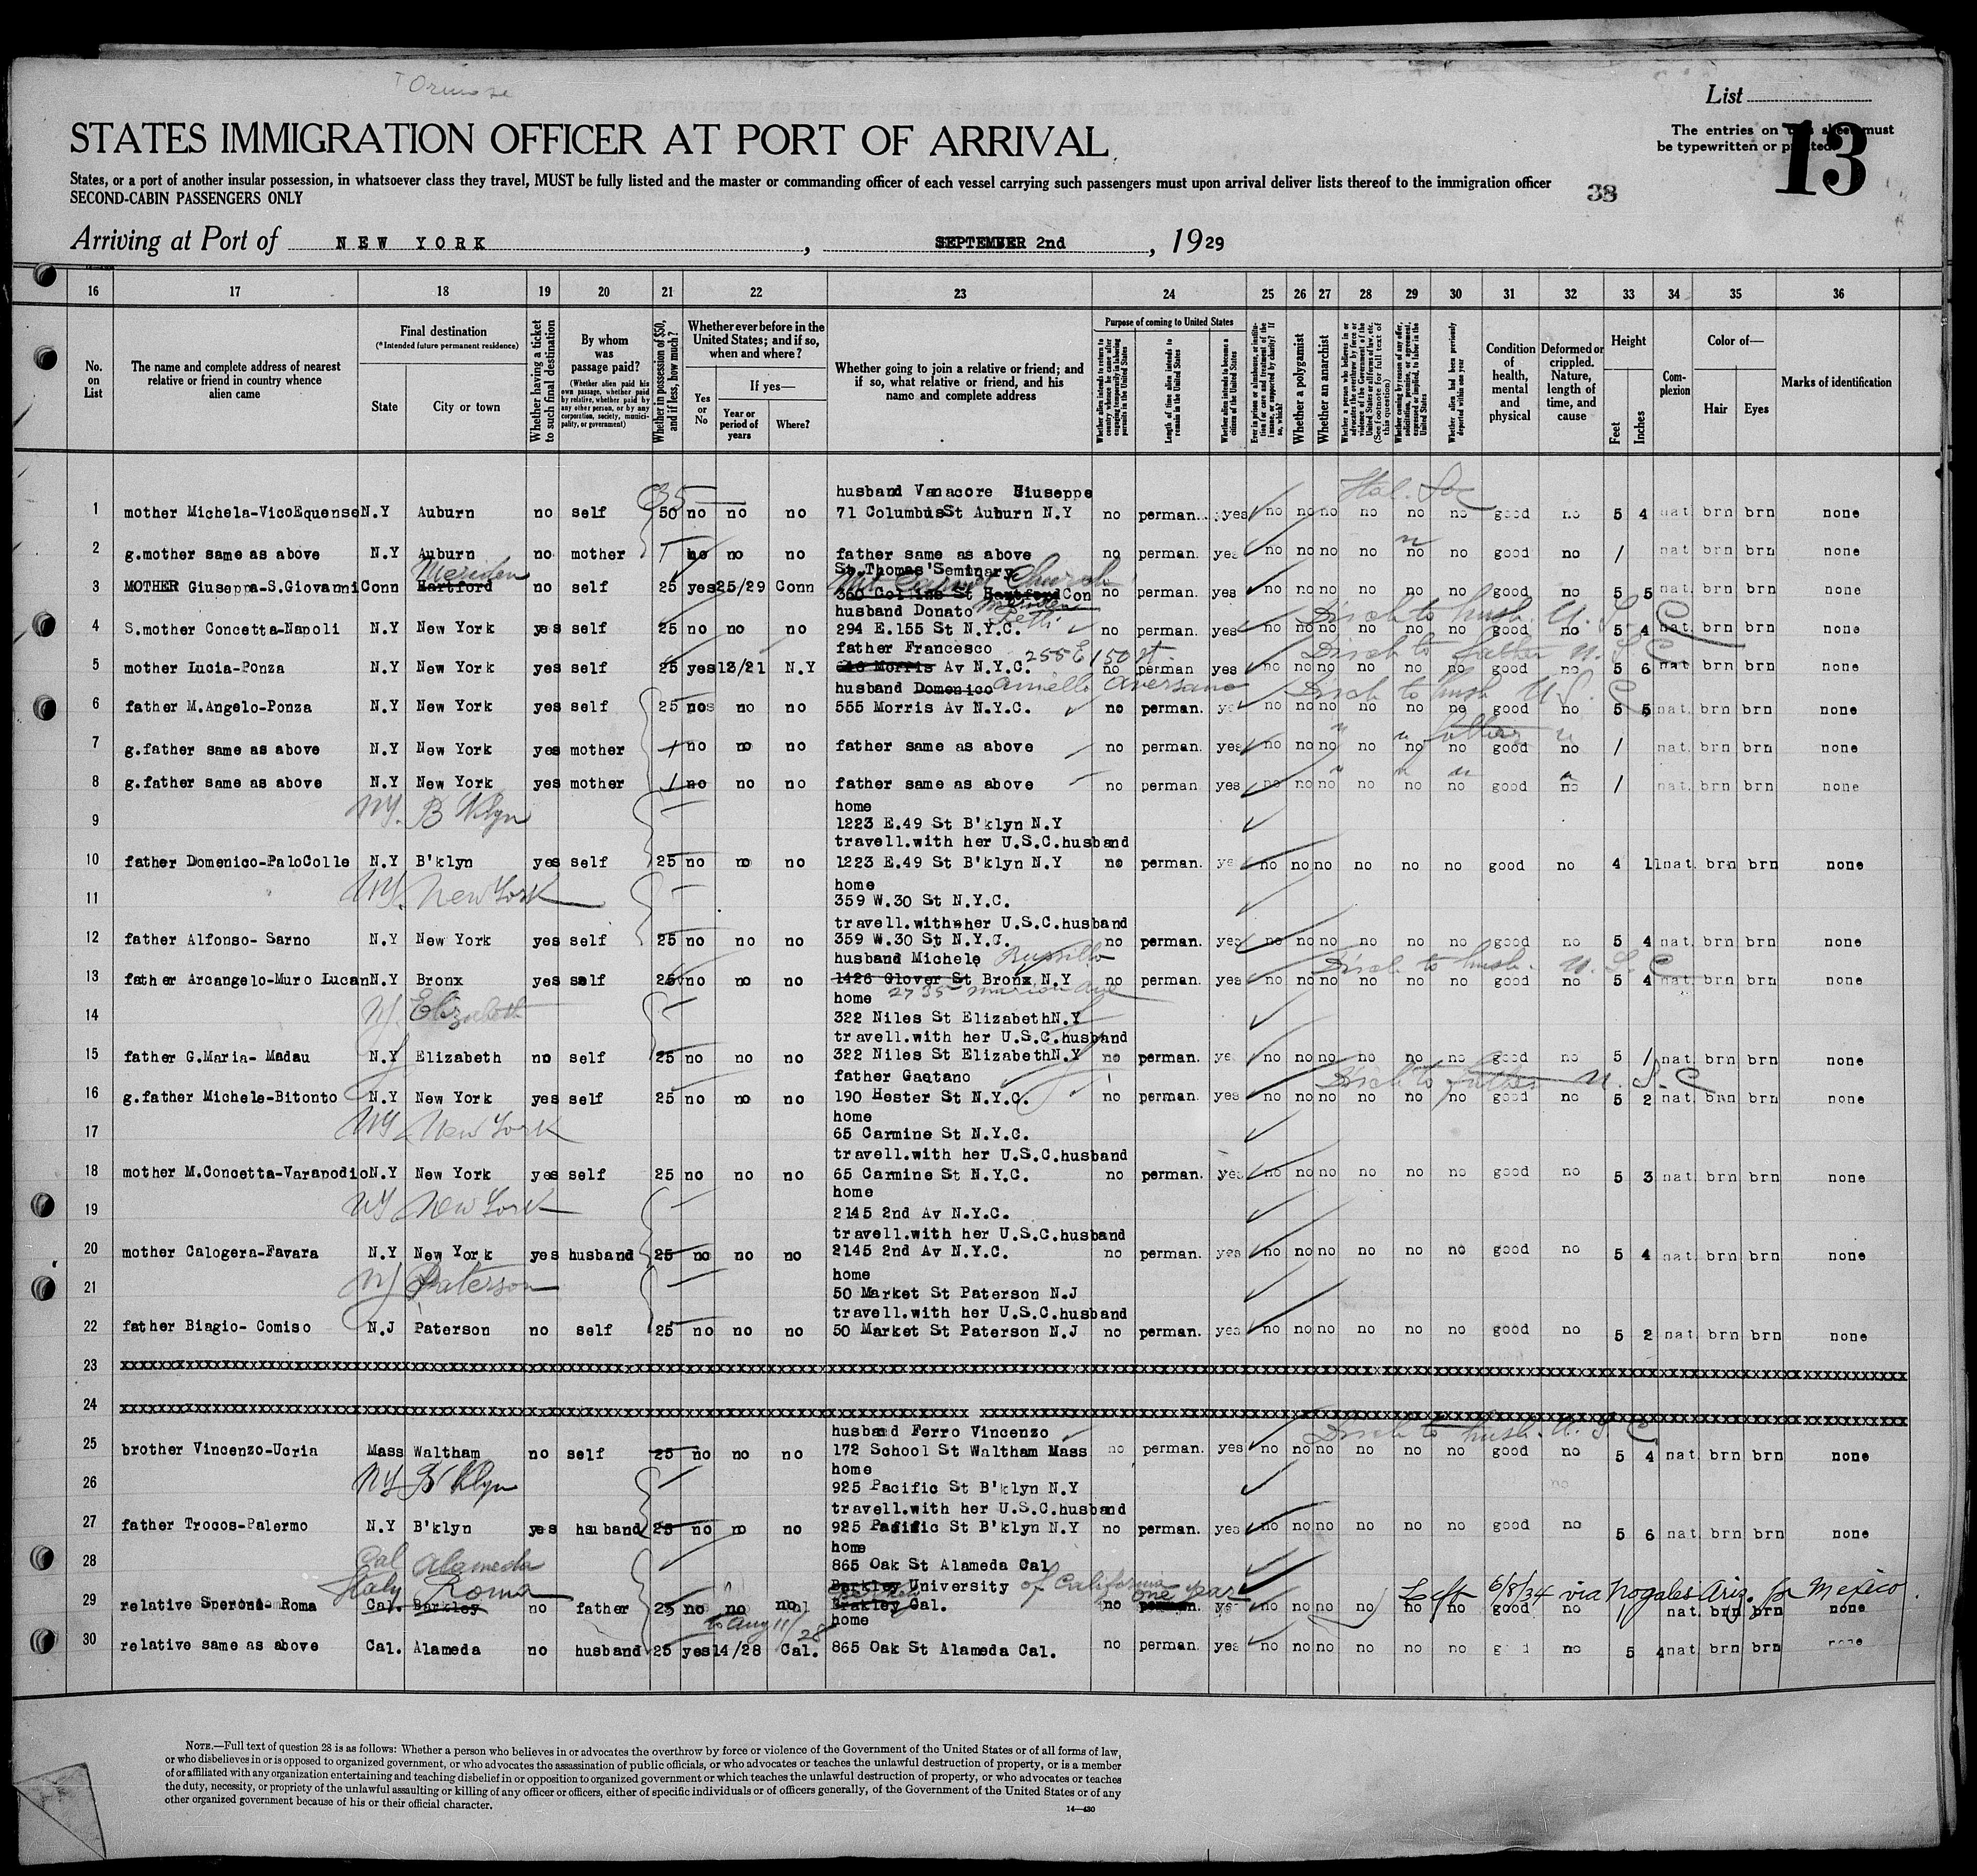 List
STATES IMMIGRATION OFFICER AT PORT OF ARRIVAL
The entries on this sheet must
be typewritten or printed
13
States, or a port of another insular possession, in whatsoever class they travel, MUST be fully listed and the master or commanding officer of each vessel carrying such passengers must upon arrival deliver lists thereof to the immigration officer
SECOND-CABIN PASSENGERS ONLY
38
Arriving at Port of NEW YORK, SEPTEMBER 2nd, 1929
16 17 18 19 20 21 22 23 24 25 26 27 28 29 30 31 32 33 34 35 36
No. on List
The name and complete address of nearest relative or friend in country whence alien came
Final destination
(*Intended future permanent residence)
State
City or town
Whether having a ticket to such final destination
By whom was passage paid?
(Whether alien paid his own passage, whether paid by relative, whether paid by any other person, or by any corporation, society, municipality, or government)
Whether in possession of $50, and if less, how much?
Whether ever before in the United States; and if so, when and where?
Yes or No
If yes—
Year or period of years
Where?
Whether going to join a relative or friend; and if so, what relative or friend, and his name and complete address
Purpose of coming to United States
Whether alien intends to return to country whence he came after engaging temporarily in laboring pursuits in the United States
Length of time alien intends to remain in the United States
Whether alien intends to become a citizen of the United States
Ever in prison or almshouse, or institution for care and treatment of the insane, or supported by charity? If so, which?
Whether a polygamist
Whether an anarchist
Whether a person who believes in or advocates the overthrow by force or violence of the Government of the United States or all forms of law, etc. (See footnote for full text of this question)
Whether coming by reason of any offer, solicitation, promise, or agreement, expressed or implied, to labor in the United States
Whether alien had been previously deported within one year
Condition of health, mental and physical
Deformed or crippled. Nature, length of time, and cause
Height
Feet
Inches
Complexion
Color of—
Hair
Eyes
Marks of identification
35
husband Vanacore Giuseppe
1 mother Michela-VicoEquense N.Y Auburn no self 50 no no no 71 ColumbusSt Auburn N.Y no perman. yes no no no no no no good no 5 4 nat. brn brn none
2 g.mother same as above N.Y Auburn no mother no no no father same as above no perman. yes no no no no no no good no / nat. brn brn none
Meriden
St.Thomas'Seminary
Mt Carmel Church
3 MOTHER Giuseppa-S.Giovanni Conn Hartford no self 25 yes 25/29 Conn 360 Collins St Hartford Con no perman. yes no no no no no no good no 5 5 nat. brn brn none
Meriden
husband Donato
Disch to husb. U.S.C
4 S.mother Concetta-Napoli N.Y New York yes self 25 no no no 294 E.155 St N.Y.C. no perman. yes no no no no no no good no 5 4 nat. brn brn none
father Francesco
255 E 150 St.
Disch to father U.S.C
5 mother Lucia-Ponza N.Y New York yes self 25 yes 13/21 N.Y Morris Av N.Y.C. no perman yes no no no no no no good no 5 6 nat brn brn none
husband Domenico Aniello Aversano
Disch to husb U.S.C
6 father M.Angelo-Ponza N.Y New York yes self 25 no no no 555 Morris Av N.Y.C. no perman. yes no no no no no no good no 5 5 nat. brn brn none
father
7 g.father same as above N.Y New York yes mother no no no father same as above no perman. yes no no no no no no good no / nat. brn brn none
8 g.father same as above N.Y New York yes mother no no no father same as above no perman. yes no no no no no no good no / nat. brn brn none
home
9 NY. B'klyn 1223 E.49 St B'klyn N.Y
travell.with her U.S.C.husband
10 father Domenico-PaloColle N.Y B'klyn yes self 25 no no no 1223 E.49 St B'klyn N.Y no perman. yes no no no no no no good no 4 11 nat. brn brn none
home
11 NY. New York 359 W.30 St N.Y.C.
travell.with her U.S.C.husband
12 father Alfonso- Sarno N.Y New York yes self 25 no no no 359 W.30 St N.Y.C. no perman. yes no no no no no no good no 5 4 nat. brn brn none
husband Michele Russillo
Disch to husb. U.S.C
13 father Arcangelo-Muro Lucan N.Y Bronx yes self 25 no no no 1426 Glover St Bronx N.Y no perman. yes no no no no no no good no 5 4 nat. brn brn none
2735 Marion Ave
home
14 NJ. Elizabeth 322 Niles St ElizabethN.Y
travell.with her U.S.C.husband
15 father G.Maria- Madau N.Y Elizabeth no self 25 no no no 322 Niles St ElizabethN.Y no perman. yes no no no no no no good no 5 / nat. brn brn none
father Gaetano
Disch to father U.S.C
16 g.father Michele-Bitonto N.Y New York yes self 25 no no no 190 Hester St N.Y.C. no perman. yes no no no no no no good no 5 2 nat. brn brn none
home
17 NY New York 65 Carmine St N.Y.C.
travell.with her U.S.C.husband
18 mother M.Concetta-Varapodio N.Y New York yes self 25 no no no 65 Carmine St N.Y.C. no perman. yes no no no no no no good no 5 3 nat. brn brn none
home
19 NY New York 2145 2nd Av N.Y.C.
travell.with her U.S.C.husband
20 mother Calogera-Favara N.Y New York yes husband 25 no no no 2145 2nd Av N.Y.C. no perman. yes no no no no no no good no 5 4 nat. brn brn none
home
21 NJ Paterson 50 Market St Paterson N.J
travell.with her U.S.C.husband
22 father Biagio- Comiso N.J Paterson no self 25 no no no 50 Market St Paterson N.J no perman. yes no no no no no no good no 5 2 nat. brn brn none
23
24
husband Ferro Vincenzo
Disch to husb. U.S.C
25 brother Vincenzo-Ucria Mass Waltham no self 25 no no no 172 School St Waltham Mass no perman. yes no no no no no no good no 5 4 nat. brn brn none
home
26 NY B'klyn 925 Pacific St B'klyn N.Y no
travell.with her U.S.C.husband
27 father Trocos-Palermo N.Y B'klyn yes husband 25 no no no 925 Pacific St B'klyn N.Y no perman. yes no no no no no no good no 5 6 nat. brn brn none
home
28 Cal Alameda 865 Oak St Alameda Cal
Italy Roma
Barkley University of California one year
Left 6/8/34 via Nogales Ariz. for Mexico
29 relative Sperone- Roma Cal. Barkley no father 25 no no no Brakley Cal. no perman. yes no no no no no no good no / nat. brn brn none
to Aug 11/28
home
30 relative same as above Cal. Alameda no husband 25 yes 14/28 Cal. 865 Oak St Alameda Cal. no perman. yes no no no no no no good no 5 4 nat. brn brn none
NOTE.—Full text of question 28 is as follows: Whether a person who believes in or advocates the overthrow by force or violence of the Government of the United States or of all forms of law,
or who disbelieves in or is opposed to organized government, or who advocates the assassination of public officials, or who advocates or teaches the unlawful destruction of property, or is a member
of or affiliated with any organization entertaining and teaching disbelief in or opposition to organized government or which teaches the unlawful destruction of property, or who advocates or teaches
the duty, necessity, or propriety of the unlawful assaulting or killing of any officer or officers, either of specific individuals or of officers generally, of the Government of the United States or of any
other organized government because of his or their official character.
14—430